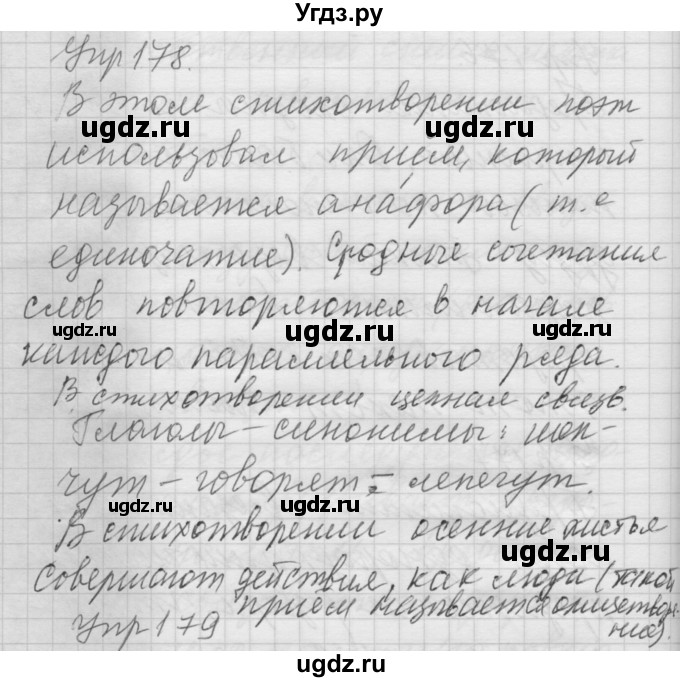 Угдз.ру
Упр 178.
В этом стихотворении поэт
использовал приём, который
называется анáфора (т.е
единочатие). Сродные сочетания
слов повторяются в начале
каждого параллельного ряда.
В стихотворении цепная связь.
Глаголы – синонимы: шоп-
чут – говорят – лепечут.
В стихотворении осенние листья
совершают действия, как люди (такой
приём называется олицетвор-
Упр 179
ние).
ugdz.ru
ugdz.ru
ugdz.ru
ugdz.ru
ugdz.ru
ugdz.ru
ugdz.ru
ugdz.ru
ugdz.ru
ugdz.ru
ugdz.ru
ugdz.ru
ugdz.ru
ugdz.ru